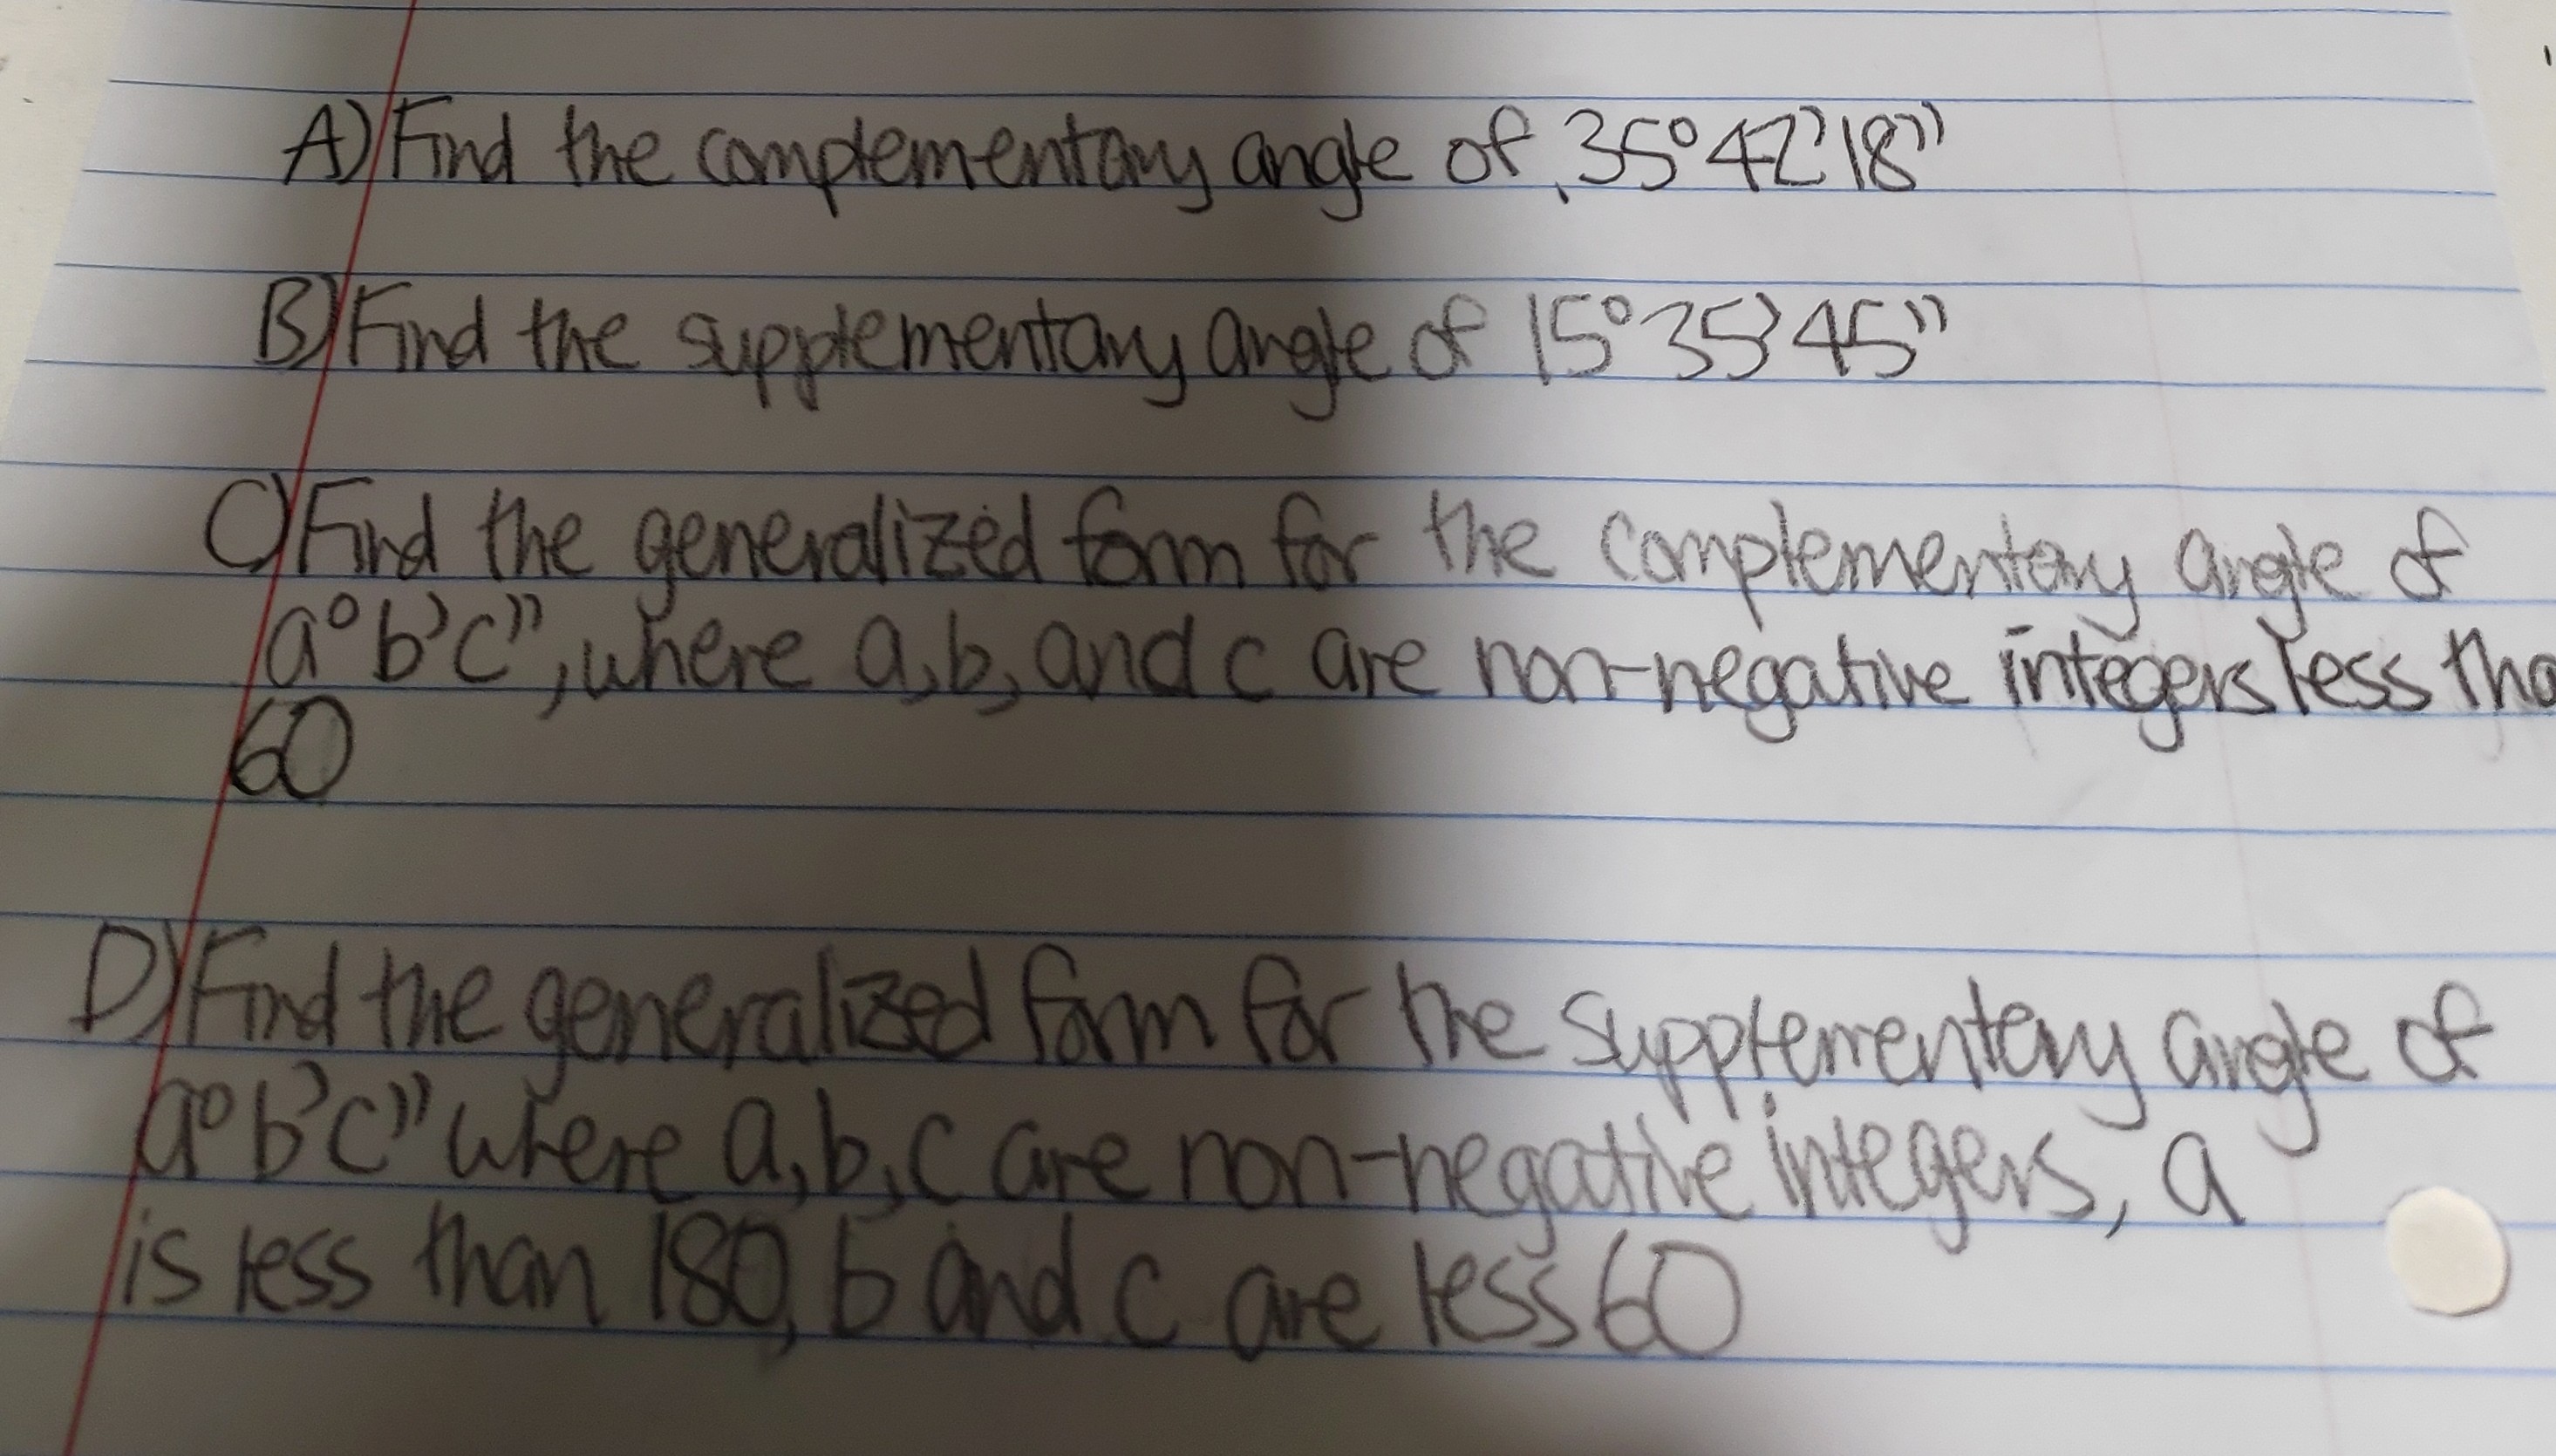 A) Find the complementary angle of 35°42'18"
B) Find the supplementary angle of 15°35'45"
C) Find the generalized form for the complementary angle of
a°b'c", where a, b, and c are non-negative integers less tha
60
D) Find the generalized form for the supplementary angle of
a°b'c" where a, b, c are non-negative integers, a
is less than 180, b and c are less 60